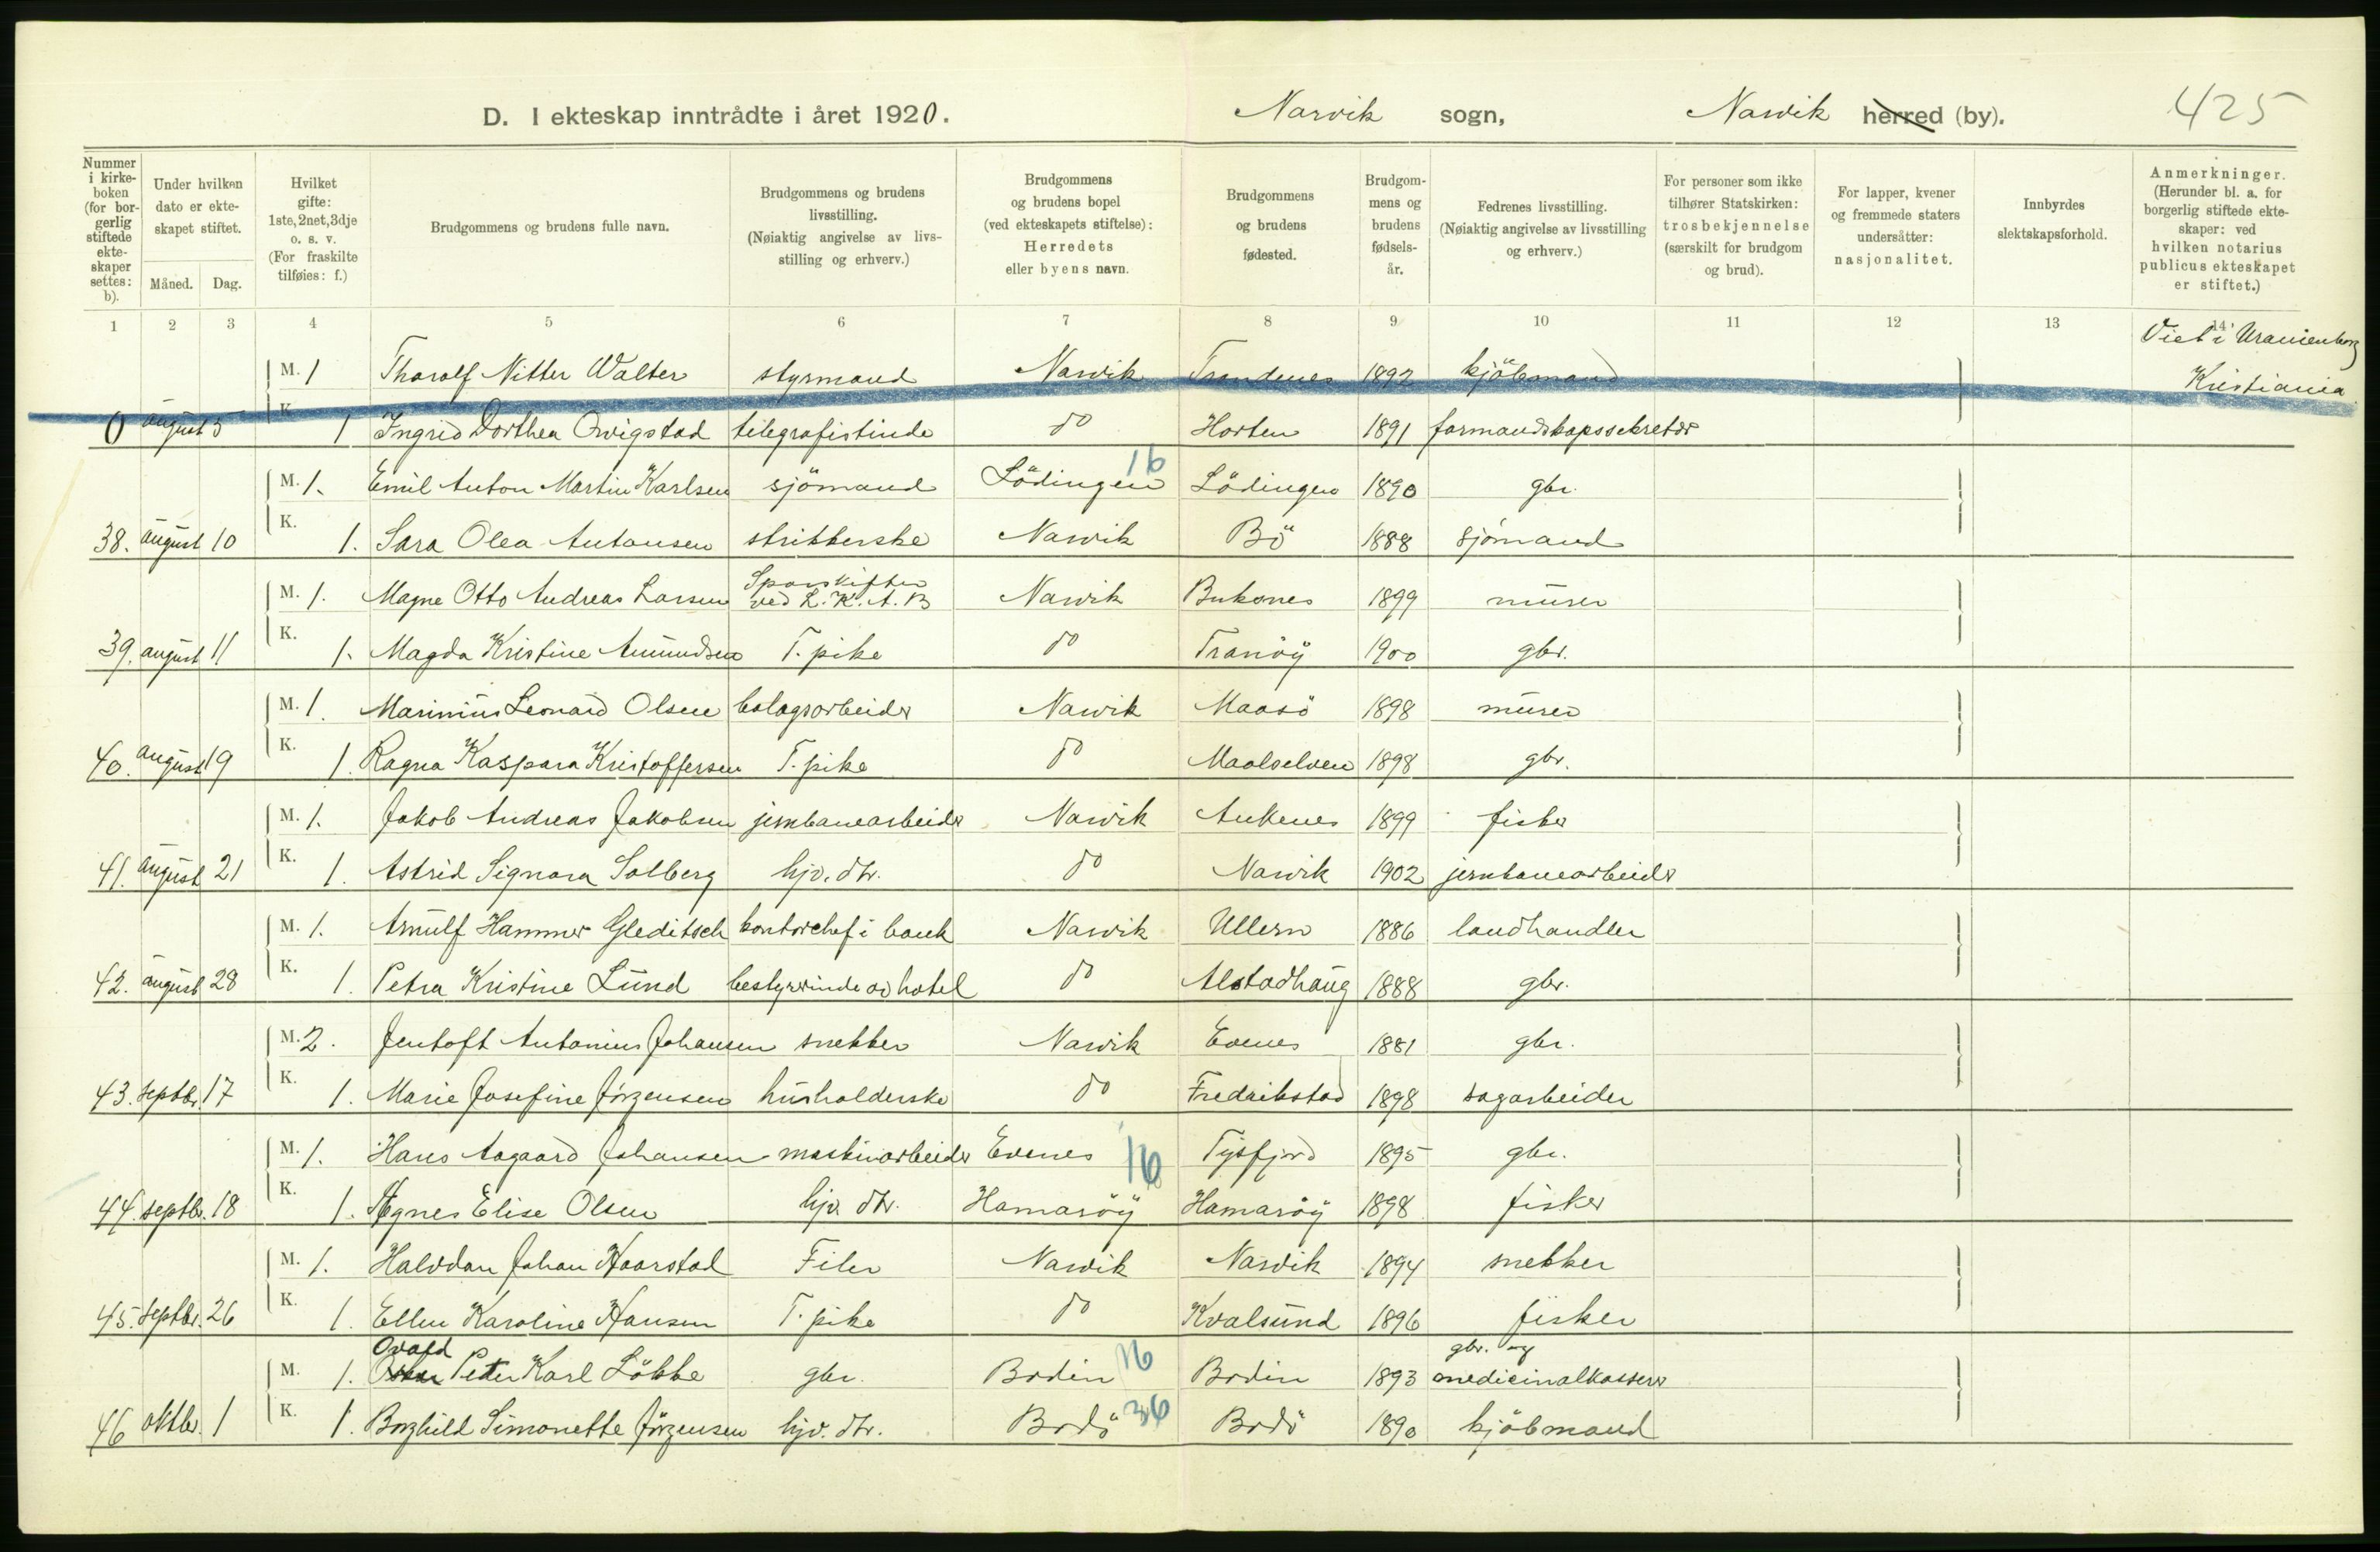 D. I ekteskap inntrådte i året 1920. Narvik sogn, Narvik herred (by). 425
Nummer i kirkeboken (for borgerlig stiftede ekteskaper settes: b).
Under hvilken dato er ekteskapet stiftet.
Måned. Dag.
Hvilket gifte: 1ste, 2net, 3dje o. s. v. (For fraskilte tilføies: f.)
Brudgommens og brudens fulle navn.
Brudgommens og brudens livsstilling. (Nøiaktig angivelse av livsstilling og erhverv.)
Brudgommens og brudens bopel (ved ekteskapets stiftelse): Herredets eller byens navn.
Brudgommens og brudens fødested.
Brudgommens og brudens fødselsår.
Fedrenes livsstilling. (Nøiaktig angivelse av livsstilling og erhverv.)
For personer som ikke tilhører Statskirken: trosbekjennelse (særskilt for brudgom og brud).
For lapper, kvener og fremmede staters undersåtter: nasjonalitet.
Innbyrdes slektskapsforhold.
Anmerkninger. (Herunder bl. a. for borgerlig stiftede ekteskaper: ved hvilken notarius publicus ekteskapet er stiftet.)
1 2 3 4 5 6 7 8 9 10 11 12 13 14
M. 1 Tharalf Nitter Walter styrmand Narvik Trondenes 1892 kjöbmand Viet i Uranienborg Kristiania
0 august 5 K. 1 Ingrid Dorthea Qvigstad telegrafistinde do Horten 1891 formandskapssekretær
M. 1. Emil Anton Martin Karlsen sjömand Lödingen 16 Lödingen 1890 gbr.
38. august 10 K. 1. Sara Olea Antonsen strikkerske Narvik Bö 1888 sjömand
M. 1. Magne Otto Andreas Larsen Sporskifter ved L.K.A.B Narvik Buksnes 1899 murer
39. august 11 K. 1. Magda Kristine Amundsen T. pike do Tranöy 1900 gbr.
M. 1. Marinius Leonard Olsen bolagsarbeider Narvik Maasö 1898 murer
40. august 19 K. 1. Ragna Kaspara Kristoffersen T. pike do Maalselven 1898 gbr.
M. 1. Jakob Andreas Jakobsen jernbanearbeider Narvik Ankenes 1899 fisker
41. august 21 K. 1. Astrid Signora Solberg hjv. dtr. do Narvik 1902 jernbanearbeider
M. 1. Arnulf Hammer Gleditsch kontorchef i bank Narvik Ullern 1886 landhandler
42. august 28 K. 1. Petra Kristine Lund bestyrerinde av hotel do Alstadhaug 1888 gbr.
M. 2. Jentoft Antonius Johansen snekker Narvik Evenes 1881 gbr.
43. septbr. 17 K. 1. Marie Josefine Jörgensen husholderske do Fredrikstad 1898 sagarbeider
M. 1. Hans Aagaard Johansen maskinarbeider Evenes 16 Tysfjord 1895 gbr.
44. septbr. 18 K. 1. Agnes Elise Olsen hjv. dtr. Hamaröy Hamaröy 1898 fisker
M. 1. Halvdan Johan Haarstad Filer Narvik Narvik 1894 snekker
45. septbr. 26 K. 1. Ellen Karoline Hansen T. pike do Kvalsund 1896 fisker
M. 1. Peter Karl Lökke gbr. Bodin 16 Bodin 1893 gbr. og medicinalkasserer
46 oktbr. 1 K. 1. Borghild Simonette Jörgensen hjv. dtr. Bodö 36 Bodö 1890 kjöbmand